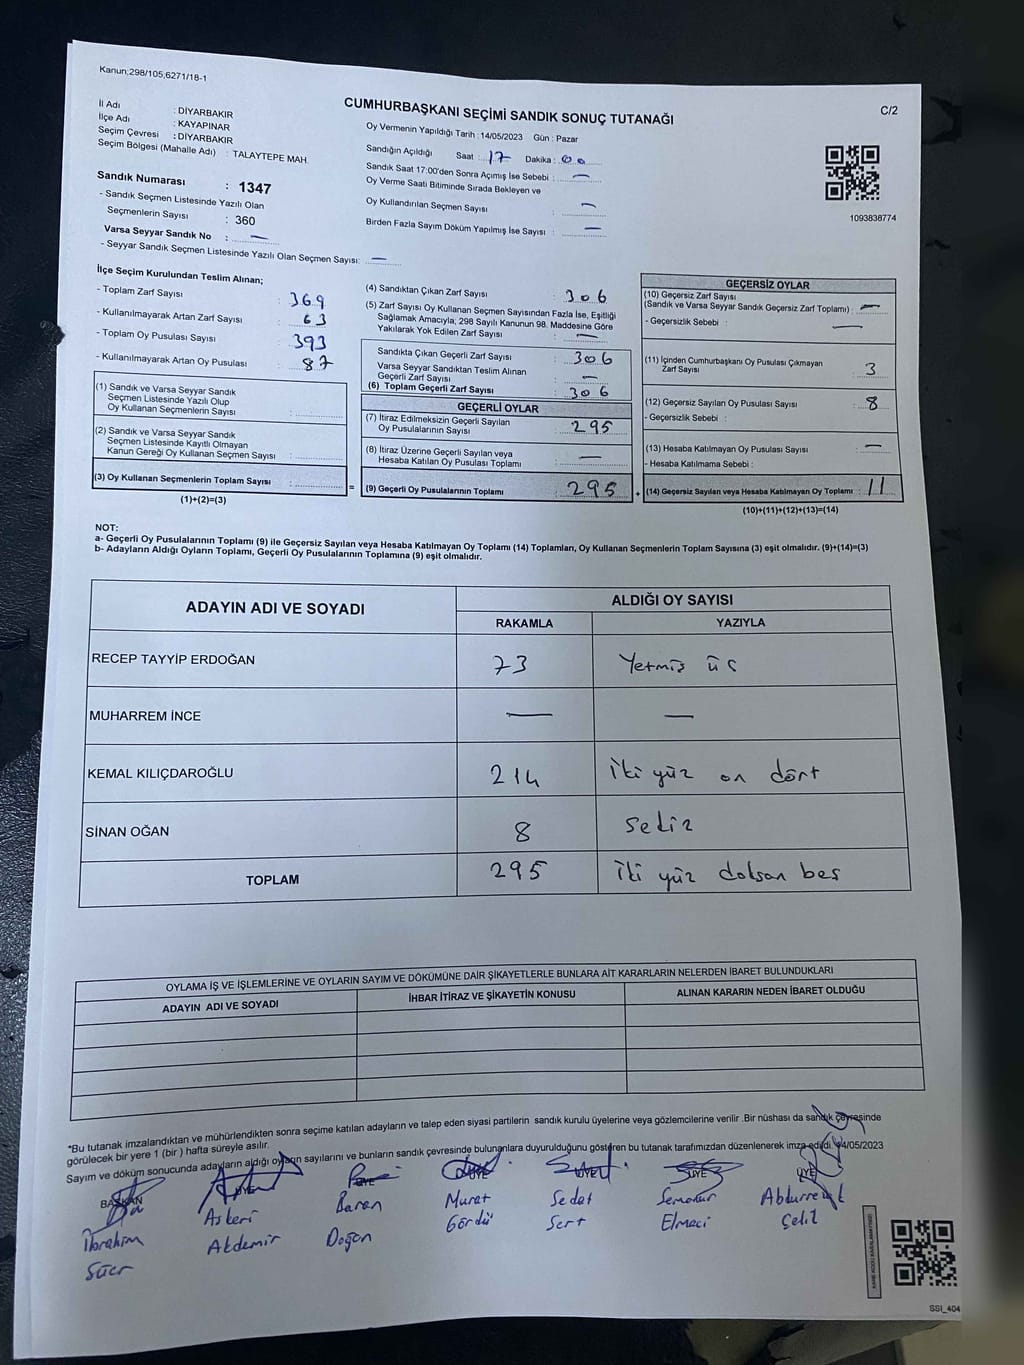 Kanun;298/105;6271/18-1
CUMHURBAŞKANI SEÇİMİ SANDIK SONUÇ TUTANAĞI
C/2
İl Adı : DİYARBAKIR
İlçe Adı : KAYAPINAR
Seçim Çevresi : DİYARBAKIR
Seçim Bölgesi (Mahalle Adı) : TALAYTEPE MAH.
Sandık Numarası : 1347
- Sandık Seçmen Listesinde Yazılı Olan
Seçmenlerin Sayısı : 360
Varsa Seyyar Sandık No : —
- Seyyar Sandık Seçmen Listesinde Yazılı Olan Seçmen Sayısı: —
Oy Vermenin Yapıldığı Tarih : 14/05/2023 Gün : Pazar
Sandığın Açıldığı Saat : 17 Dakika : 00
Sandık Saat 17:00'den Sonra Açımış İse Sebebi : —
Oy Verme Saati Bitiminde Sırada Bekleyen ve
Oy Kullandırılan Seçmen Sayısı : —
Birden Fazla Sayım Döküm Yapılmış İse Sayısı : —
1093838774
İlçe Seçim Kurulundan Teslim Alınan;
- Toplam Zarf Sayısı : 369
- Kullanılmayarak Artan Zarf Sayısı : 63
- Toplam Oy Pusulası Sayısı : 393
- Kullanılmayarak Artan Oy Pusulası : 87
(1) Sandık ve Varsa Seyyar Sandık
Seçmen Listesinde Yazılı Olup
Oy Kullanan Seçmenlerin Sayısı :
(2) Sandık ve Varsa Seyyar Sandık
Seçmen Listesinde Kayıtlı Olmayan
Kanun Gereği Oy Kullanan Seçmen Sayısı :
(3) Oy Kullanan Seçmenlerin Toplam Sayısı :
(1)+(2)=(3)
(4) Sandıktan Çıkan Zarf Sayısı : 306
(5) Zarf Sayısı Oy Kullanan Seçmen Sayısından Fazla İse, Eşitliği
Sağlamak Amacıyla; 298 Sayılı Kanunun 98. Maddesine Göre
Yakılarak Yok Edilen Zarf Sayısı : —
Sandıkta Çıkan Geçerli Zarf Sayısı : 306
Varsa Seyyar Sandıktan Teslim Alınan
Geçerli Zarf Sayısı : —
(6) Toplam Geçerli Zarf Sayısı : 306
GEÇERLİ OYLAR
(7) İtiraz Edilmeksizin Geçerli Sayılan
Oy Pusulalarının Sayısı : 295
(8) İtiraz Üzerine Geçerli Sayılan veya
Hesaba Katılan Oy Pusulası Toplamı : —
= (9) Geçerli Oy Pusulalarının Toplamı : 295
GEÇERSİZ OYLAR
(10) Geçersiz Zarf Sayısı
(Sandık ve Varsa Seyyar Sandık Geçersiz Zarf Toplamı) : —
- Geçersizlik Sebebi : —
(11) İçinden Cumhurbaşkanı Oy Pusulası Çıkmayan
Zarf Sayısı : 3
(12) Geçersiz Sayılan Oy Pusulası Sayısı : 8
- Geçersizlik Sebebi :
(13) Hesaba Katılmayan Oy Pusulası Sayısı : —
- Hesaba Katılmama Sebebi :
+ (14) Geçersiz Sayılan veya Hesaba Katılmayan Oy Toplamı : 11
(10)+(11)+(12)+(13)=(14)
NOT:
a- Geçerli Oy Pusulalarının Toplamı (9) ile Geçersiz Sayılan veya Hesaba Katılmayan Oy Toplamı (14) Toplamları, Oy Kullanan Seçmenlerin Toplam Sayısına (3) eşit olmalıdır. (9)+(14)=(3)
b- Adayların Aldığı Oyların Toplamı, Geçerli Oy Pusulalarının Toplamına (9) eşit olmalıdır.
ADAYIN ADI VE SOYADI
ALDIĞI OY SAYISI
RAKAMLA YAZIYLA
RECEP TAYYİP ERDOĞAN 73 Yetmiş üç
MUHARREM İNCE — —
KEMAL KILIÇDAROĞLU 214 İki yüz on dört
SİNAN OĞAN 8 Sekiz
TOPLAM 295 İki yüz doksan beş
OYLAMA İŞ VE İŞLEMLERİNE VE OYLARIN SAYIM VE DÖKÜMÜNE DAİR ŞİKAYETLERLE BUNLARA AİT KARARLARIN NELERDEN İBARET BULUNDUKLARI
ADAYIN ADI VE SOYADI İHBAR İTİRAZ VE ŞİKAYETİN KONUSU ALINAN KARARIN NEDEN İBARET OLDUĞU
*Bu tutanak imzalandıktan ve mühürlendikten sonra seçime katılan adayların ve talep eden siyasi partilerin sandık kurulu üyelerine veya gözlemcilerine verilir .Bir nüshası da sandık çevresinde
görülecek bir yere 1 (bir ) hafta süreyle asılır.
Sayım ve döküm sonucunda adayların aldığı oyların sayılarını ve bunların sandık çevresinde bulunanlara duyurulduğunu gösteren bu tutanak tarafımızdan düzenlenerek imza edildi. 14/05/2023
BAŞKAN ÜYE ÜYE ÜYE ÜYE ÜYE ÜYE
İbrahim Askeri Baran Murat Sedat Semanur
Süer Akdemir Doğan Gördü Sert Elmaci Çelik
SSI_404